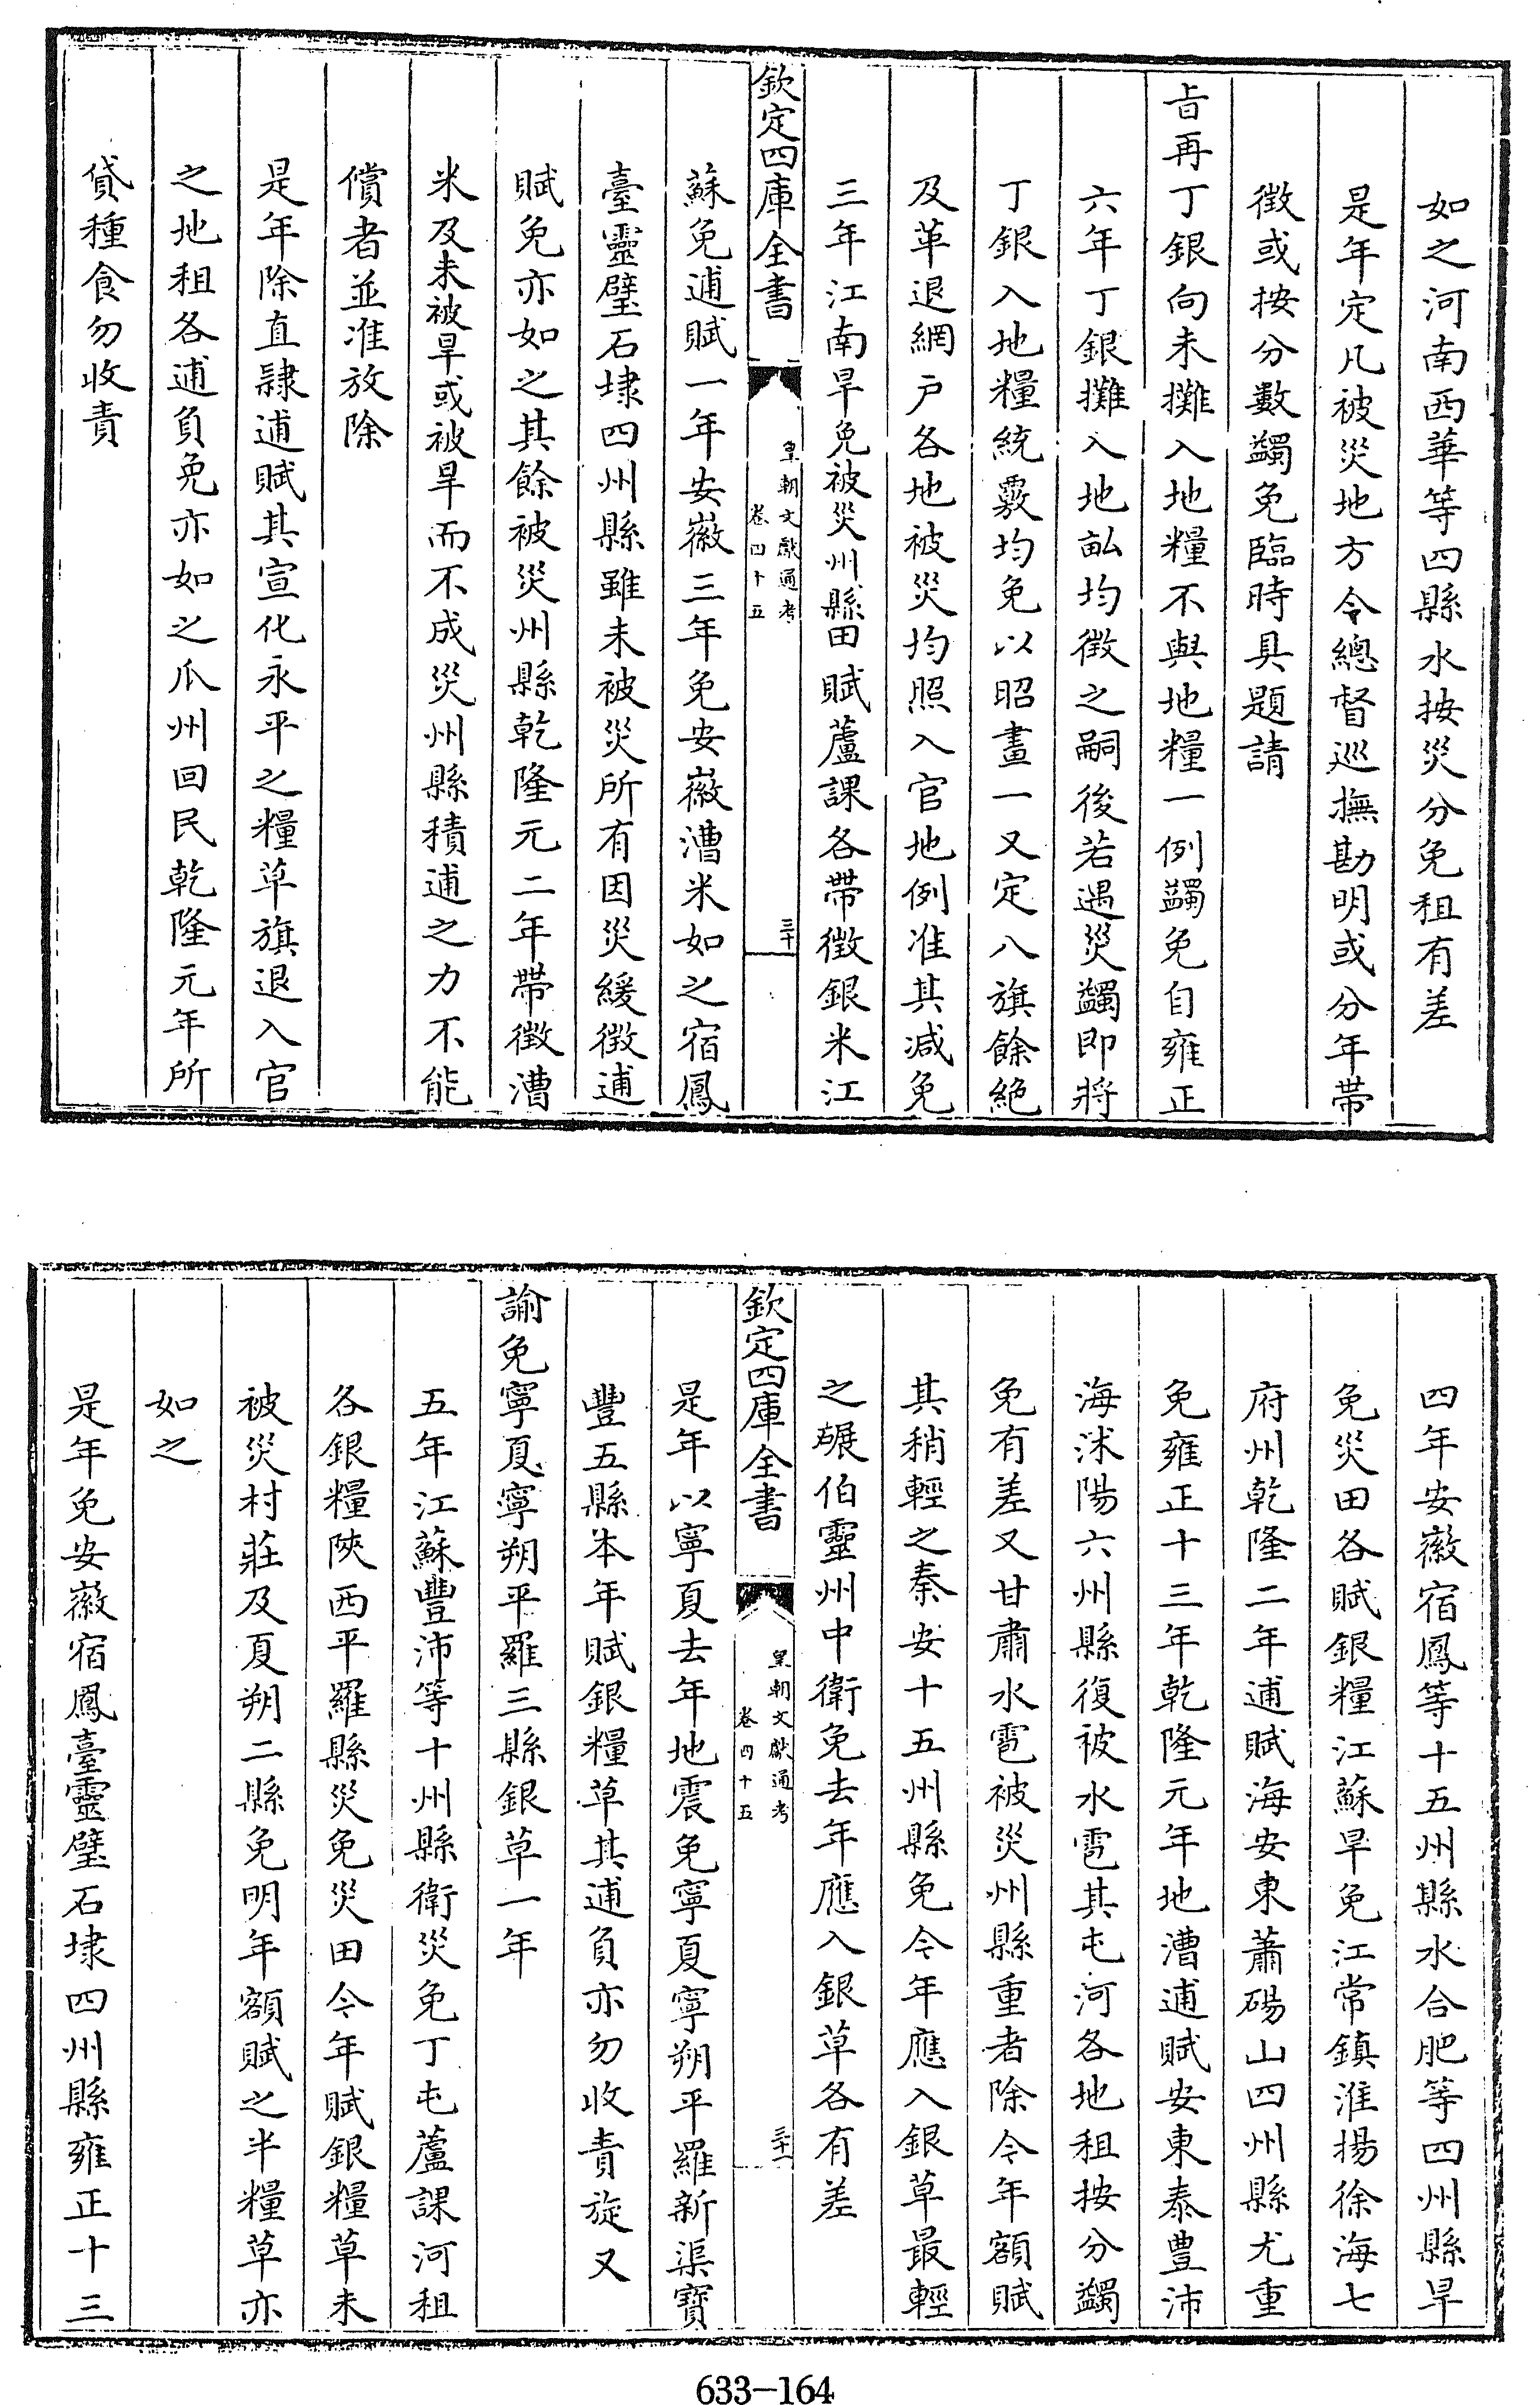 如之河南西華等四縣水按災分免租有差
是年定凡被災地方令總督巡撫勘明或分年帶
徵或按分數蠲免臨時具題請
㫖再丁銀向未攤入地糧不與地糧一例蠲免自雍正
六年丁銀攤入地畆均徵之嗣後若遇災蠲即將
丁銀入地糧統覈均免以昭畫一又定八旗餘絶
及革退網户各地被災均照入官地例准其減免
三年江南旱免被災州縣田賦蘆課各帶徵銀米江
欽定四庫全書
皇朝文獻通考
卷四十五
三十
蘇免逋賦一年安徽三年免安徽漕米如之宿鳳
臺靈璧石埭四州縣雖未被災所有因災緩徵逋
賦免亦如之其餘被災州縣乾隆元二年帶徵漕
米及未被旱或被旱而不成災州縣積逋之力不能
償者並准放除
是年除直隸逋賦其宣化永平之糧草旗退入官
之地租各逋負免亦如之瓜州回民乾隆元年所
貸種食勿收責
四年安徽宿鳳等十五州縣水合肥等四州縣旱
免災田各賦銀糧江蘇旱免江常鎮淮揚徐海七
府州乾隆二年逋賦海安東蕭碭山四州縣尤重
免雍正十三年乾隆元年地漕逋賦安東泰豊沛
海沭陽六州縣復被水雹其屯河各地租按分蠲
免有差又甘肅水雹被災州縣重者除今年額賦
其稍輕之秦安十五州縣免今年應入銀草最輕
之碾伯靈州中衛免去年應入銀草各有差
欽定四庫全書
皇朝文獻通考
卷四十五
三十一
是年以寧夏去年地震免寧夏寧朔平羅新渠寶
豐五縣本年賦銀糧草其逋負亦勿收責旋又
諭免寧夏寧朔平羅三縣銀草一年
五年江蘇豐沛等十州縣衛災免丁屯蘆課河租
各銀糧陜西平羅縣災免災田今年賦銀糧草未
被災村莊及夏朔二縣免明年額賦之半糧草亦
如之
是年免安徽宿鳳臺靈璧石埭四州縣雍正十三
633-164